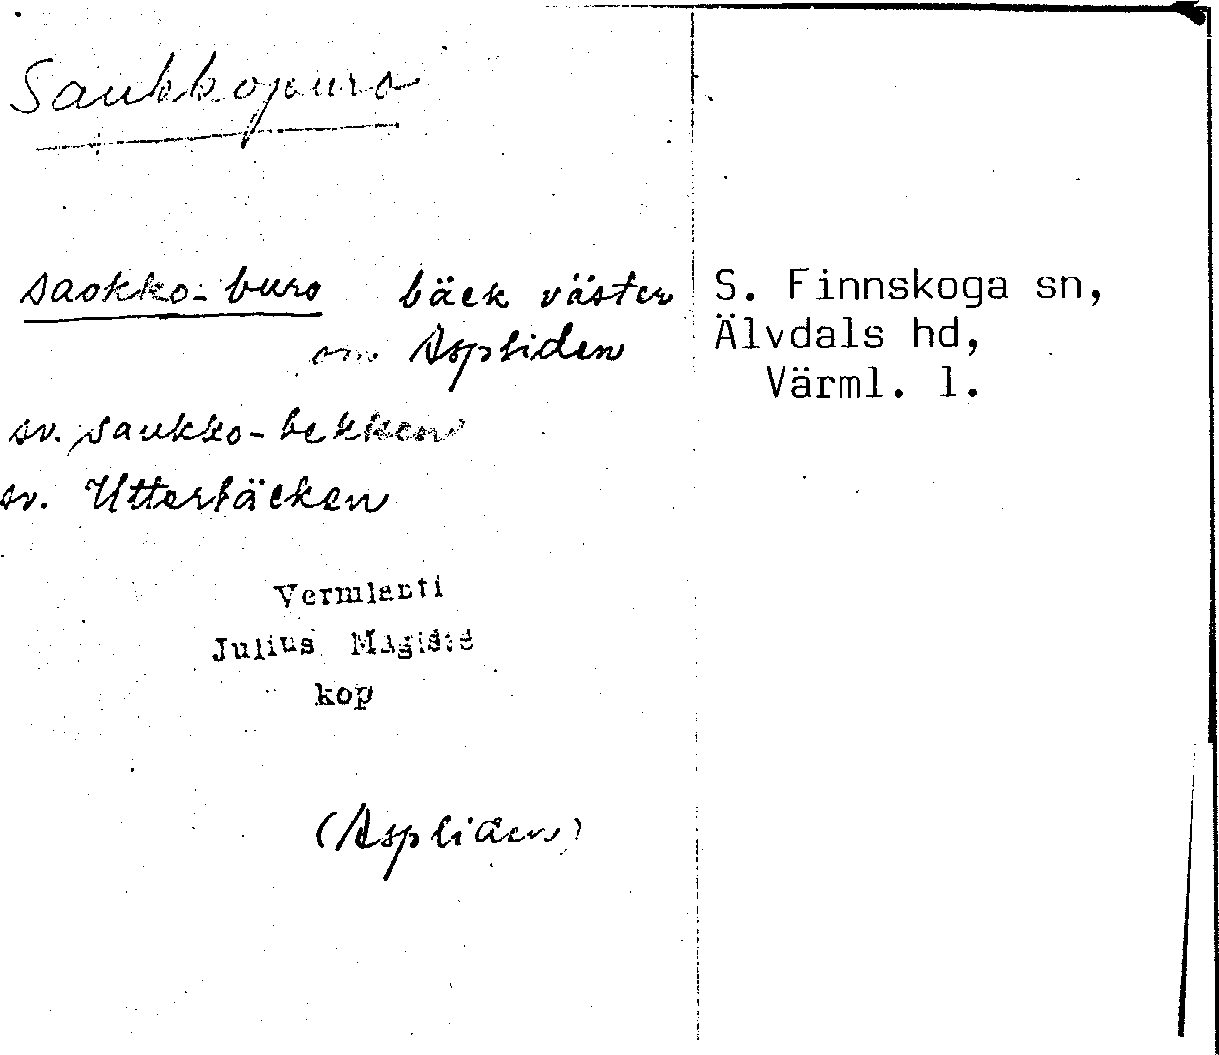 Saukkopuro
saokko-buro bäck väster
om Aspliden
S. Finnskoga sn,
Älvdals hd,
Värml. l.
sv. saukko-bekken
sv. Utterbäcken
Vermlanti
Julius Mägiste
kop
(Aspliden)